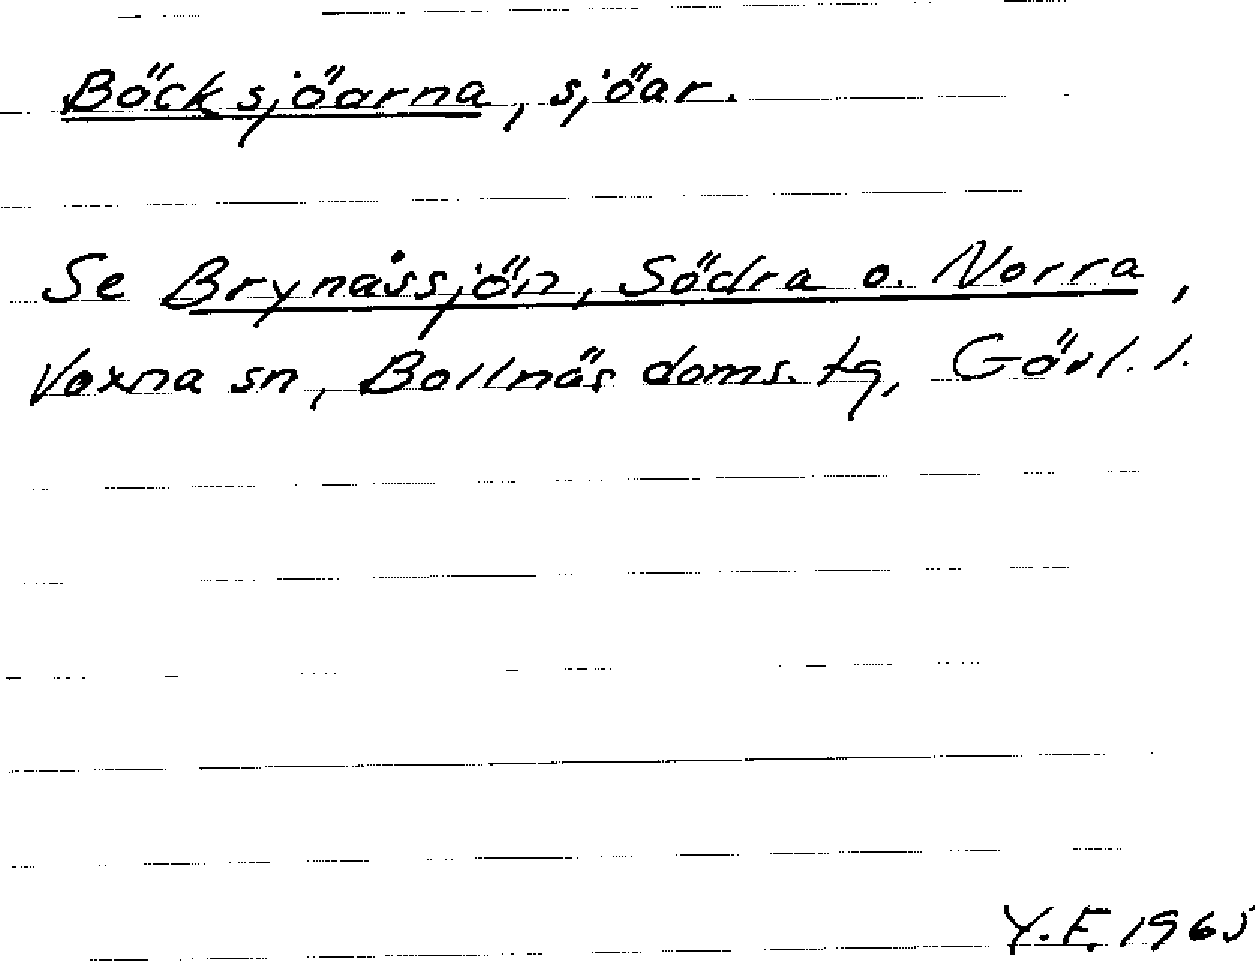 Bäcksjöarna, sjöar.
Se Brynåssjön, Södra o. Norra,
Voxna sn, Bollnäs doms. tg, Gävl. l.
Y.F. 1965